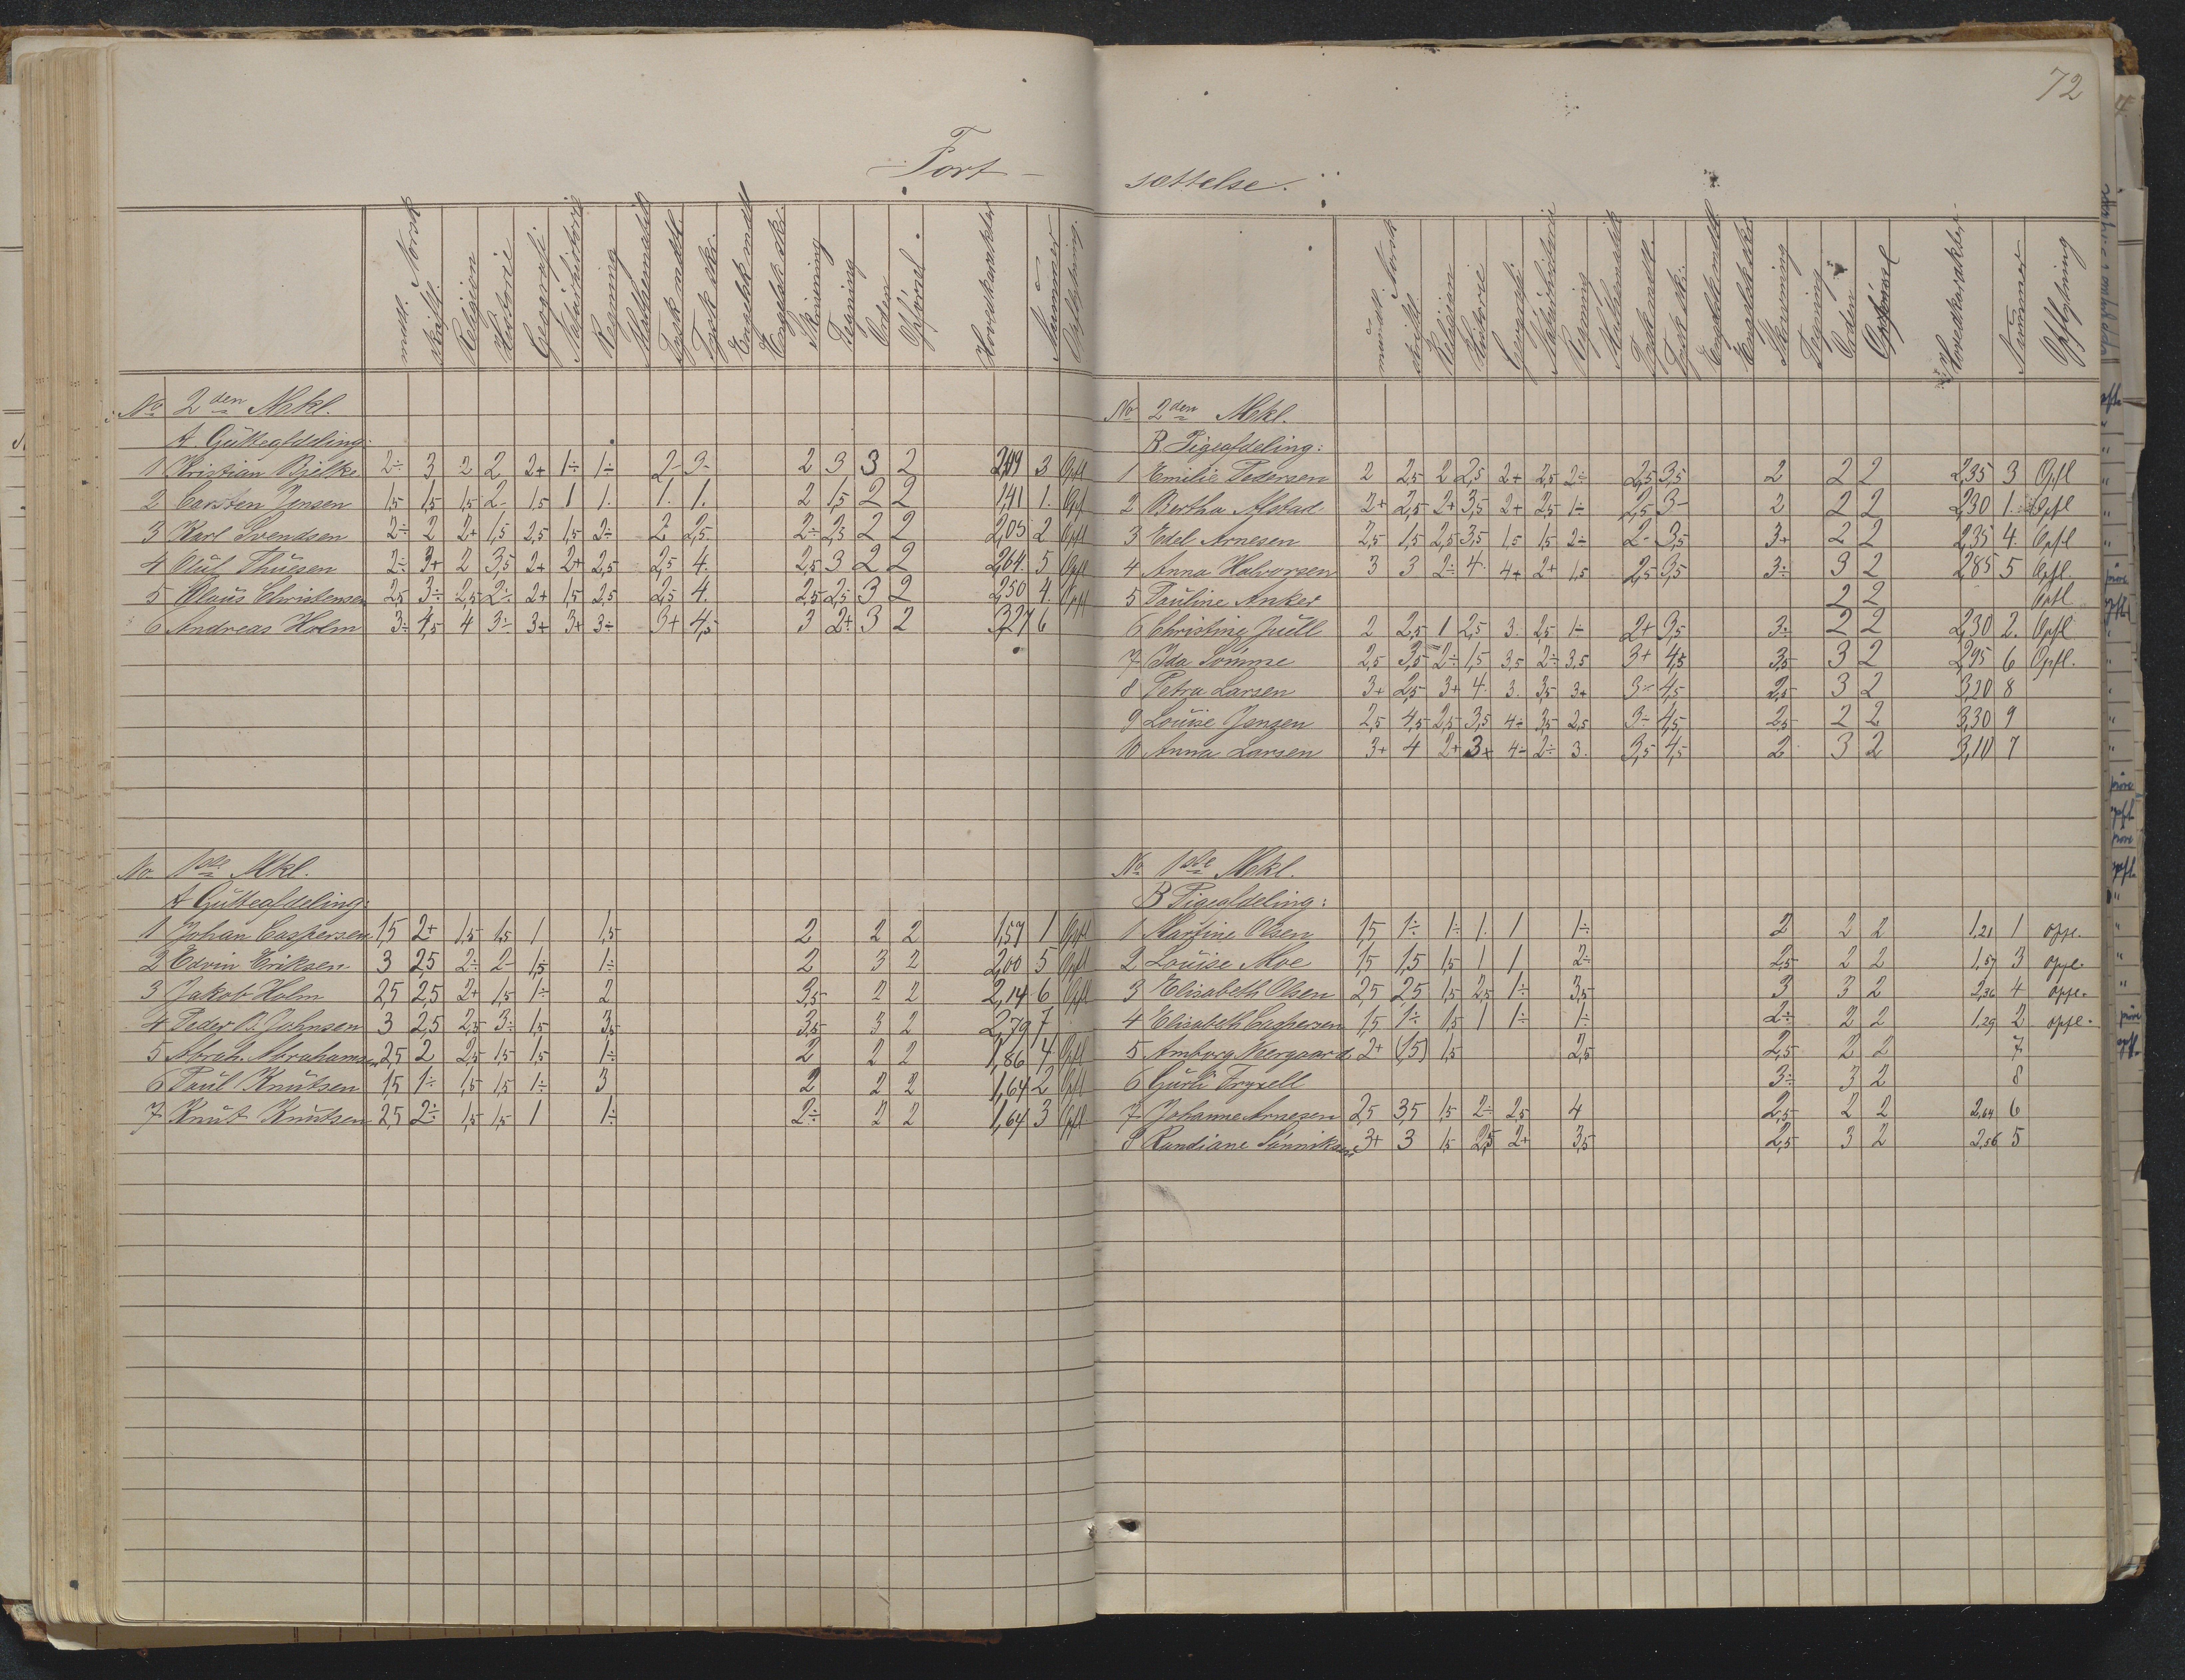 72
Fort-
sættelse.
mdtl. Norsk
skiftl.
Religion
Historie
Geografi
Naturhistorie
Regning
Mathematik
Tysk mdtl.
Tysk skr.
Engelsk mdtl
Engelsk skr.
Skrivning
Tegning
Orden
Opførsel.
Hovedkarakter
Nummer
Opflytning.
No 2den Mkl.
A. Gutteafdeling:
1 Kristian Bjelke 2÷ 3 2 2 2+ 1÷ 1÷ 2- 3- 2 3 3 2 2,19 3 Opfl
2 Carsten Jensen 1,5 1,5 1,5 2- 1,5 1 1. 1. 1. 2 1,5 2 2 1,41 1. Opfl
3 Karl Svendsen 2÷ 2 2+ 1,5 2,5 1,5 2÷ 2- 2,5 2÷ 2,5 2 2 2,05 2 Opfl
4 Oluf Thuesen 2÷ 3+ 2 3,5 2+ 2+ 2,5 2,5 4. 2,5 3 2 2 2,64. 5 Opfl
5 Claus Christensen 2,5 3÷ 2,5 2÷ 2+ 1,5 2,5 2,5 4. 2,5 2,5 3 2 2,50 4. Opfl
6 Andreas Holm 3÷ 4,5 4 3÷ 3+ 3+ 3÷ 3+ 4,5 3 2+ 3 2 3,27 6
No 1ste Mkl.
A Gutteafdeling:
1 Johan Caspersen 1,5 2+ 1,5 1,5 1 1,5 2 2 2 1,57 1 Opfl
2 Edvin Eriksen 3 2,5 2÷ 2- 1,5 1÷ 2 3 2 2,00 5 Opfl
3 Jakob Holm 2,5 2,5 2+ 1,5 1÷ 2 3,5 2 2 2,14 6 Opfl
4 Peder B. Johnsen 3 2,5 2,5 3÷ 1,5 3,5 3,5 3 2 2,79 7
5 Abrah. Abrahamsen 2,5 2 2,5 1,5 1,5 1÷ 2 2 2 1,86 4 Opfl
6 Paul Knutsen 1,5 1÷ 1,5 1,5 1÷ 3 2 2 2 1,64 2 Opfl
7 Knut Knutsen 2,5 2÷ 1,5 1,5 1 1÷ 2÷ 2 2 1,64 3 Opfl
mundtl. Norsk
skriftl.
Religion
Historie
Geografi
Naturhistorie
Regning
Mathematik
Tysk mdtl.
Tysk skr.
Engelsk mdtl
Engelsk skr.
Skrivning
Tegning
Orden
Opførsel
Hovedkarakter
Nummer
Opflytning
No 2den Mkl.
B Pigeafdeling:
1 Emilie Pedersen 2 2,5 2 2,5 2+ 2,5 2÷ 2,5 3,5 2 2 2 2,35 3 Opfl
2 Bertha Alstad 2+ 2,5 2+ 3,5 2+ 2,5 1÷ 2,5 3- 2 2 2 2,30 1. Opfl
3 Edel Arnesen 2,5 1,5 2,5 3,5 1,5 1,5 2÷ 2- 3,5 3+ 2 2 2,35 4. Opfl
4 Anna Halvorsen 3 3 2÷ 4. 4+ 2+ 1,5 2,5 3,5 3÷ 3 2 2,85 5 Opfl.
5 Pauline Anker 2 2 Opfl
6 Christine Juell 2 2,5 1 2,5 3. 2,5 1÷ 2+ 3,5 3÷ 2 2 2,30 2. Opfl
7 Ida Sømme 2,5 3,5 2÷ 1,5 3,5 2÷ 3,5 3+ 4,5 3,5 3 2 2,95 6 Opfl.
8 Petra Larsen 3+ 2,5 3+ 4. 3. 3,5 3+ 3÷ 4,5 2,5 3 2 3,20 8
9 Louise Jensen 2,5 4,5 2,5 3,5 4÷ 3,5 2,5 3÷ 4,5 2,5 2 2 3,30 9
10 Anna Larsen 3+ 4 2+ 3+ 4÷ 2÷ 3. 3,5 4,5 2 3 2 3,10 7
No 1ste Mkl.
B Pigeafdeling:
1 Martine Olsen 1,5 1÷ 1÷ 1. 1 1÷ 2 2 2 1.21 1 opfl.
2 Louise Moe 1,5 1,5 1,5 1 1 2÷ 2,5 2 2 1,57 3 opfl.
3 Elisabeth Olsen 2,5 2,5 1,5 2,5 1÷ 3,5 3 3 2 2,36 4 opfl.
4 Elisabeth Caspersen 1,5 1÷ 1,5 1 1÷ 1÷ 2÷ 2 2 1.29 2 opfl.
5 Amborg Neergaard 2+ (1,5) 1,5 2,5 2,5 2 2 7
6 Gurli Fryxell 3÷ 3 2 8
7 Johanne Arnesen 2,5 3,5 1,5 2÷ 2,5 4 2,5 2 2 2,64 6
8 Randiane Sønniksen 3+ 3 1,5 2,5 2+ 3,5 2,5 3 2 2,56 5